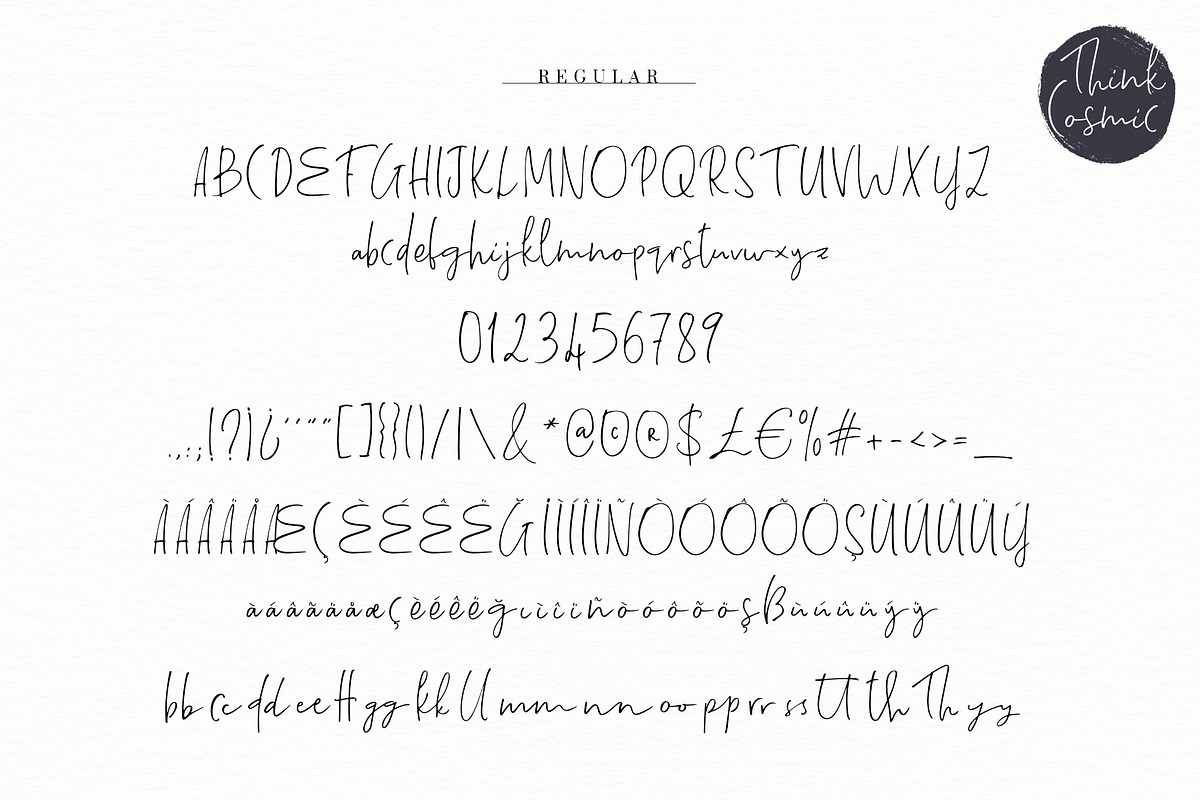 REGULAR
Think
Cosmic
ABCDEFGHIJKLMNOPQRSTUVWXYZ
abcdefghijklmnopqrstuvwxyz
0123456789
.,:;!?¡¿‘’“”"[]{}()/|\&*@©®$£€%#+-<>=_
ÀÁÂÃÄÅÆÇÈÉÊËĞİÌÍÎÏÑÒÓÔÕÖŞÙÚÛÜÝ
àáâãäåæçèéêëğıìíîïñòóôõöşßùúûüýÿ
bb cc dd ee ff gg kk ll mm nn oo pp rr ss tt th Th yy